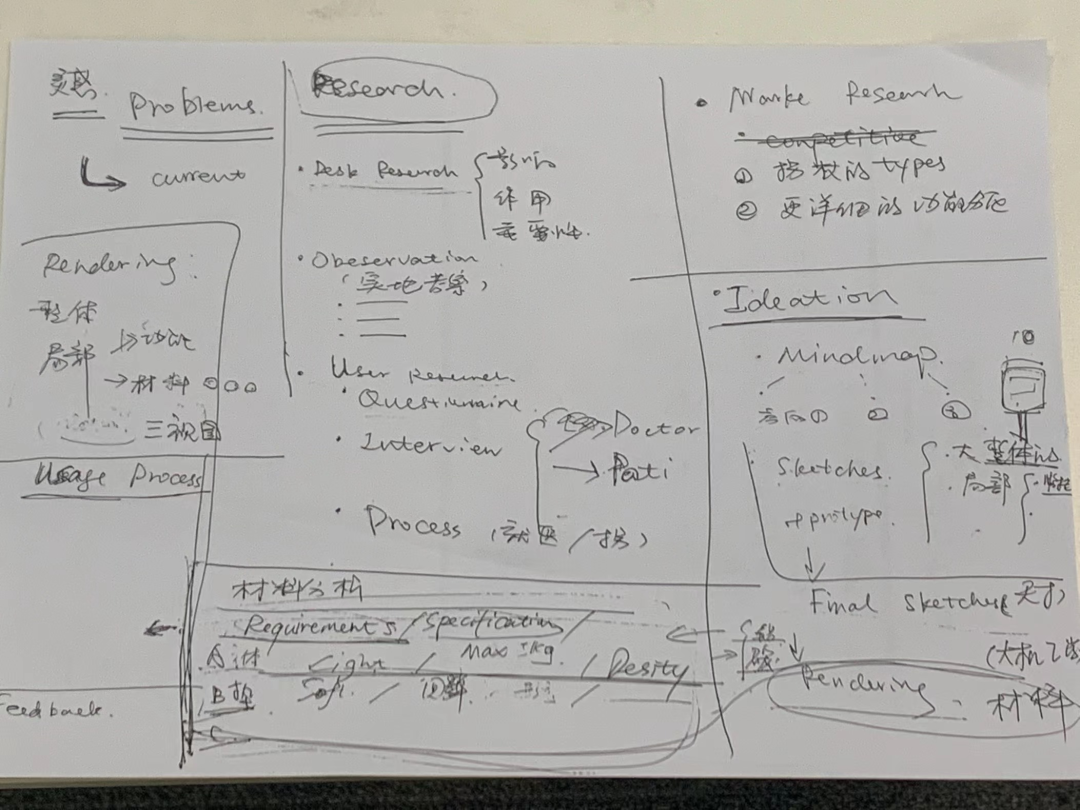 灵感.
Problems.
current
Rendering:
整体
局部
→功能
→材料
三视图
Usage Process
Feedback.
Research.
· Desk Research
影响
作用
重要性.
· Obeservation
(实地考察)
· User Research
· Questionnaire
· Interview
Doctor
→ Pati
· Process (就医/
材料分析
Requirements/Specification/
Light / Max 1kg. / Desity
Soft. / 回弹
· Marke Research
· competitive
① types
② 更详细的功能
· Ideation
· Mindmap.
方向① ② ③
· Sketches.
+ protype.
大整体
· 局部
Final Sketches
Rendering
材料